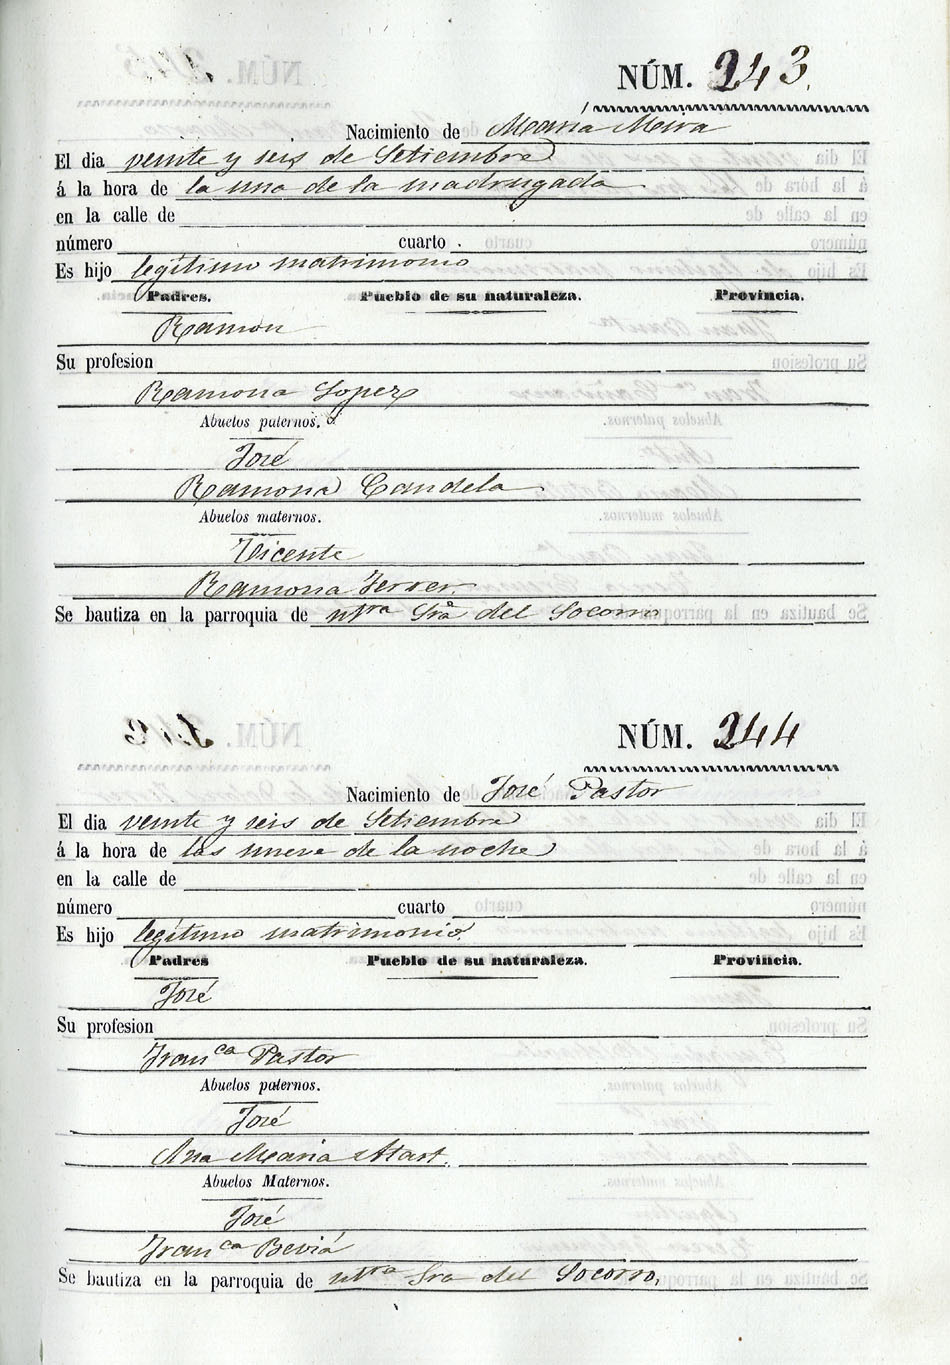 NÚM. 243.
Nacimiento de Maria Mira
El dia veinte y seis de Setiembre
á la hora de la una de la madrugada
en la calle de
número cuarto .
Es hijo legítimo matrimonio
Padres. Pueblo de su naturaleza. Provincia.
Ramon
Su profesion
Ramona Lopez
Abuelos paternos.
José
Ramona Candela
Abuelos maternos.
Vicente
Ramona Ferrer.
Se bautiza en la parroquia de ntra Sra del Socorro
NÚM. 244
Nacimiento de José Pastor
El dia veinte y seis de Setiembre
á la hora de las nueve de la noche
en la calle de
número cuarto
Es hijo legítimo matrimonio.
Padres Pueblo de su naturaleza. Provincia.
José
Su profesion
Franca Pastor
Abuelos paternos.
José
Ana Maria
Abuelos Maternos.
José
Franca Beviá
Se bautiza en la parroquia de ntra Sra del Socorro.